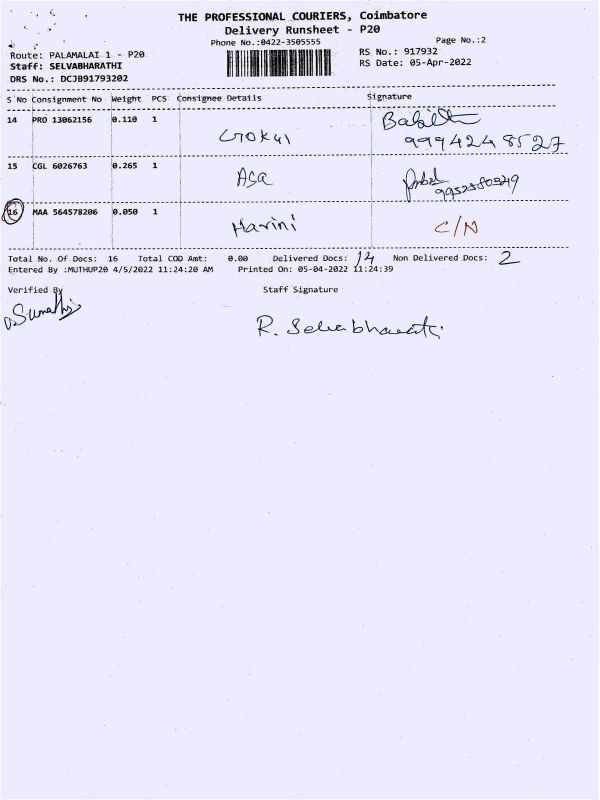 THE PROFESSIONAL COURIERS, Coimbatore
Delivery Runsheet - P20
Phone No.:0422-3505555 Page No.:2
Route: PALAMALAI 1 - P20 RS No.: 917932
Staff: SELVABHARATHI RS Date: 05-Apr-2022
DRS No.: DCJB91793202
S No Consignment No Weight PCS Consignee Details Signature
14 PRO 13062156 0.110 1 Gokul
9994248527
15 CGL 6026763 0.265 1 Asa
9952580549
16 MAA 564578206 0.050 1 Harini C/N
Total No. Of Docs: 16 Total COD Amt: 0.00 Delivered Docs: 14 Non Delivered Docs: 2
Entered By :MUTHUP20 4/5/2022 11:24:20 AM Printed On: 05-04-2022 11:24:39
Verified By Staff Signature
Sumathi
R. Selvabharathi